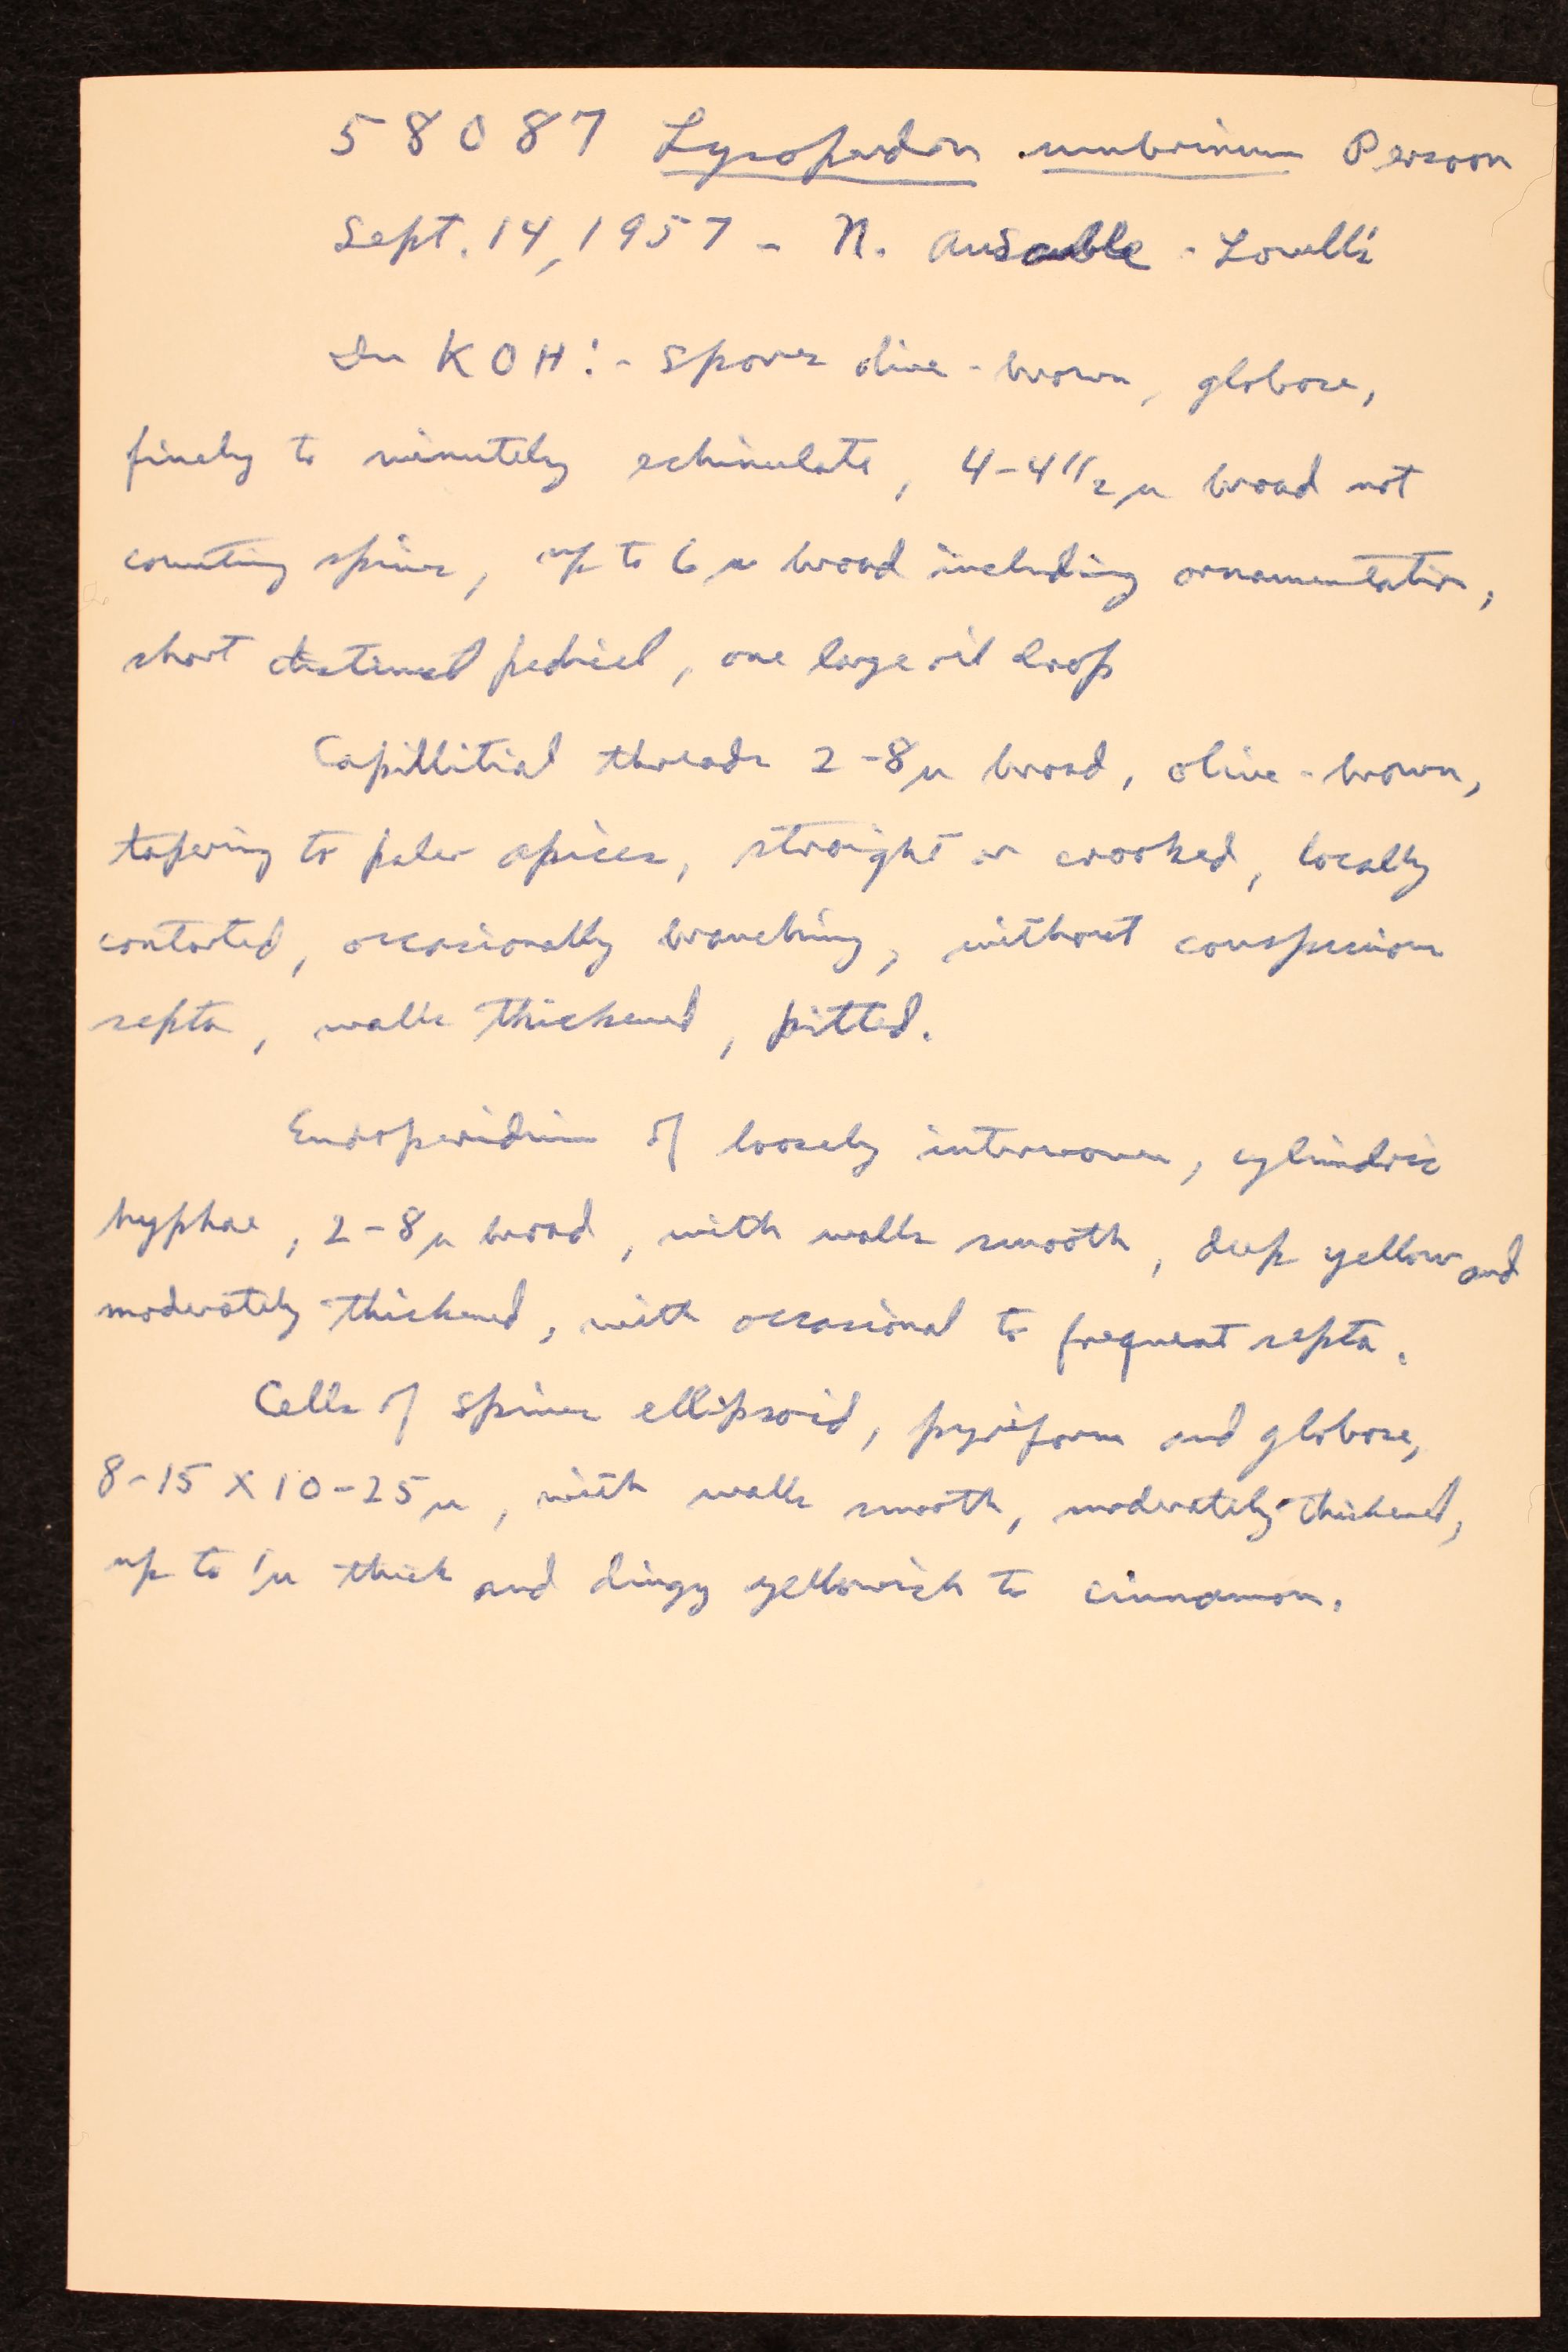 58087 Lycoperdon umbrinum Persoon
Sept. 14, 1957 - N. AuSable - Lovells
In KOH:- Spores olive-brown, globose,
finely to minutely echinulate, 4-4 1/2 μ broad not
counting spines, up to 6 μ broad including ornamentation,
short distinct pedicel, one large oil drop
Capillitial threads 2-8 μ broad, olive-brown,
tapering to paler apices, straight or crooked, locally
contorted, occasionally branching, without conspicuous
septa, walls thickened, pitted.
Endoperidium of loosely interwoven, cylindric
hyphae, 2-8 μ broad, with walls smooth, deep yellow and
moderately thickened, with occasional to frequent septa.
Cells of spines ellipsoid, pyriform and globose,
8-15 X 10-25 μ, with walls smooth, moderately thickened,
up to 1 μ thick and dingy yellowish to cinnamon.